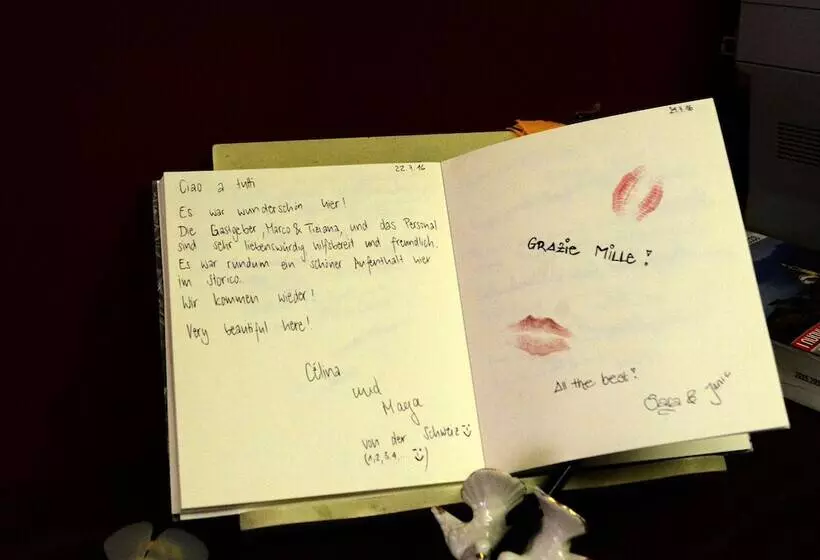 22.7.16
Ciao a tutti
Es war wunderschön hier!
Die Gastgeber, Marco & Tiziana, und das Personal
sind sehr liebenswürdig hilfsbereit und freundlich.
Es war rundum ein schöner Aufenthalt hier
im Storico.
Wir kommen wieder!
Very beautiful here!
Célina
und
Maya
von der Schweiz
(1,2,3,4,...)
GRAZIE MILLE!
All the best!
Sara & Janic